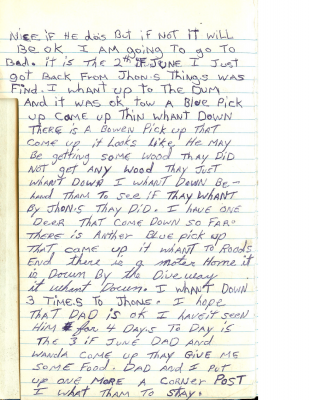 Nice if He dois But if Not it will
Be ok I AM going To go To
Bed. it is The 2th if June I Just
got Back From Jhon.s Things was
Find. I whant up To the Dum
And it was ok tow A Blue Pick
up Come up Thin whant Down
There is A Bowen Pick up That
come up it Looks Like He May
Be getting some wood Thay Did
Not get Any wood Thay Just
whant Down I whant Down Be-
hend Them To see if Thay whant
By Jhon.s Thay Did. I have one
Deer That Come Down So Far.
There is Anther Blue pick up
That came up it whant To Roads
End there is a moter Home it
is Down By the Diveway
it whant Down. I whant Down
3 Times To Jhons. I hope
That DAD is ok I haveit seen
Him for 4 Days To Day is
The 3 if June DAD and
Wanda come up Thay Give Me
some Food. DAD and I put
up one More A corner Post
I what Tham To Stay.